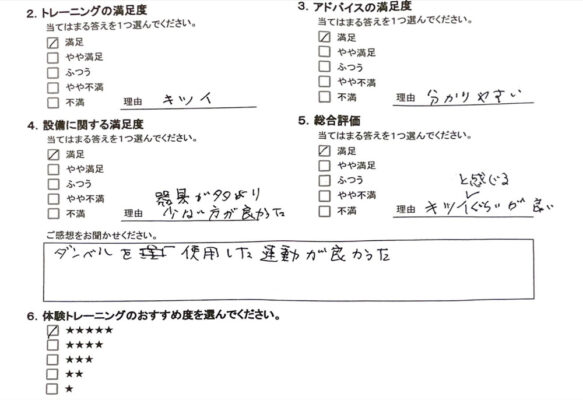 2. トレーニングの満足度
当てはまる答えを1つ選んでください。
満足
やや満足
ふつう
やや不満
不満 理由 キツイ
3. アドバイスの満足度
当てはまる答えを1つ選んでください。
満足
やや満足
ふつう
やや不満
不満 理由 分かりやすい
4. 設備に関する満足度
当てはまる答えを1つ選んでください。
満足
やや満足
ふつう
やや不満
不満 理由 器具が多々より
少ない方が良かった
5. 総合評価
当てはまる答えを1つ選んでください。
満足
やや満足
ふつう
やや不満
と感じる
不満 理由 キツイぐらいが良い
ご感想をお聞かせください。
ダンベルを 使用した運動が良かった
6. 体験トレーニングのおすすめ度を選んでください。
★★★★★
★★★★
★★★
★★
★